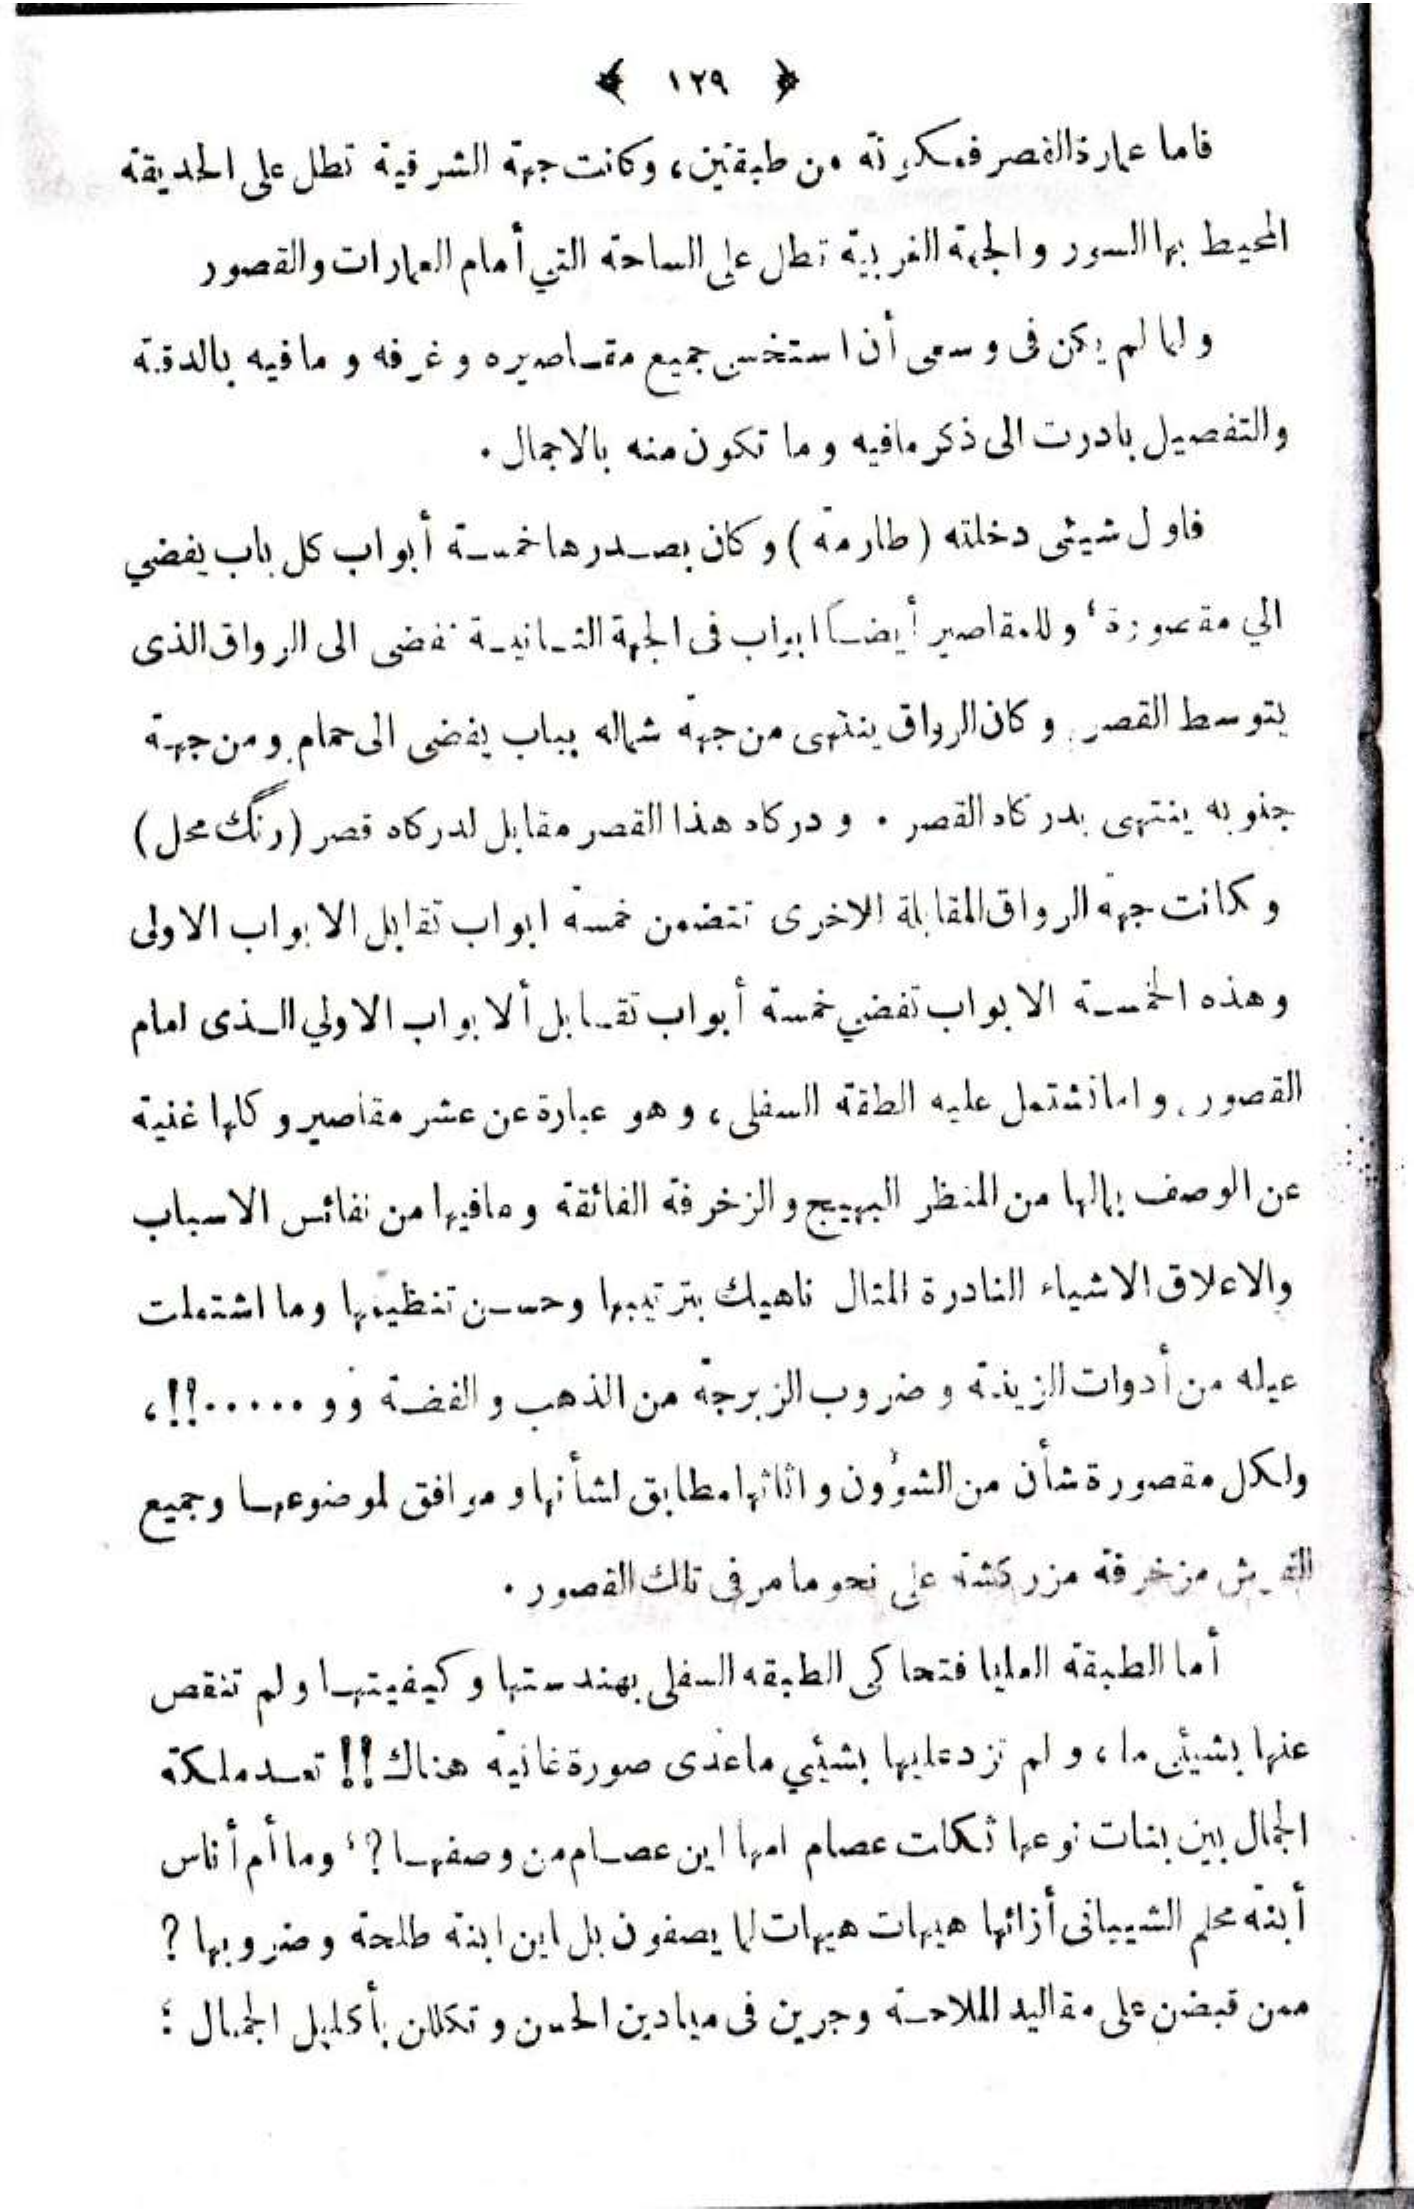 ﴿ ١٢٩ ﴾
فاما عمارة القصر فمكونة من طبقتين، وكانت جهة الشرقية تطل على الحديقة
المحيط بها السور والجهة الغربية تطل على الساحة التي أمام العمارات والقصور
ولما لم يكن فى وسعى أن استخسس جميع مقاصيره وغرفه وما فيه بالدقة
والتفصيل بادرت الى ذكر مافيه وما تكون منه بالاجمال.
فاول شيئى دخلته (طارمة) وكان بصدرها خمسة أبواب كل باب يفضي
الي مقصورة، وللمقاصير أيضاً ابواب فى الجهة الثانية تفضى الى الرواق الذى
يتوسط القصر. وكان الرواق ينتهى من جهة شماله بباب يفضى الى حمام ومن جهة
جنوبه ينتهى بدركاه القصر. ودركاه هذا القصر مقابل لدركاه قصر (رنگ محل)
وكانت جهة الرواق المقابلة الاخرى تتضمن خمسة ابواب تقابل الابواب الاولى
وهذه الخمسة الابواب تفضي خمسة أبواب تقابل ألابواب الاولي الذى امام
القصور. واما تشتمل عليه الطقة السفلى، وهو عبارة عن عشر مقاصير وكلها غنية
عن الوصف بمالها من المنظر البهيج والزخرفة الفائقة ومافيها من نفائس الاسباب
والاعلاق الاشياء النادرة المثال ناهيك بترتيبها وحسن تنظيمها وما اشتملت
عيله من أدوات الزينة وضروب الزبرجة من الذهب والفضة وو .....!!،
ولكل مقصورة شأن من الشؤون واثاثها مطابق لشأنها وموافق لموضوعها وجميع
الفرش مزخرفة مزركشة على نحو ما مر فى تلك القصور.
أما الطبقة العليا فتحاكى الطبقه السفلى بهندستها وكيفيتها ولم تنقص
عنها بشيئى ما، ولم تزد عليها بشيئي ماعدى صورة غانية هناك!! تعد ملكة
الجمال بين بنات نوعها ثكلت عصام امها اين عصام من وصفها؟، وما أم أناس
أبنة محلم الشيبانى أزائها هيهات هيهات لما يصفون بل اين ابنة طلحة وضروبها ?
ممن قبضن على مقاليد الملاحة وجرين فى ميادين الحسن وتكللن بأكليل الجمال ؛